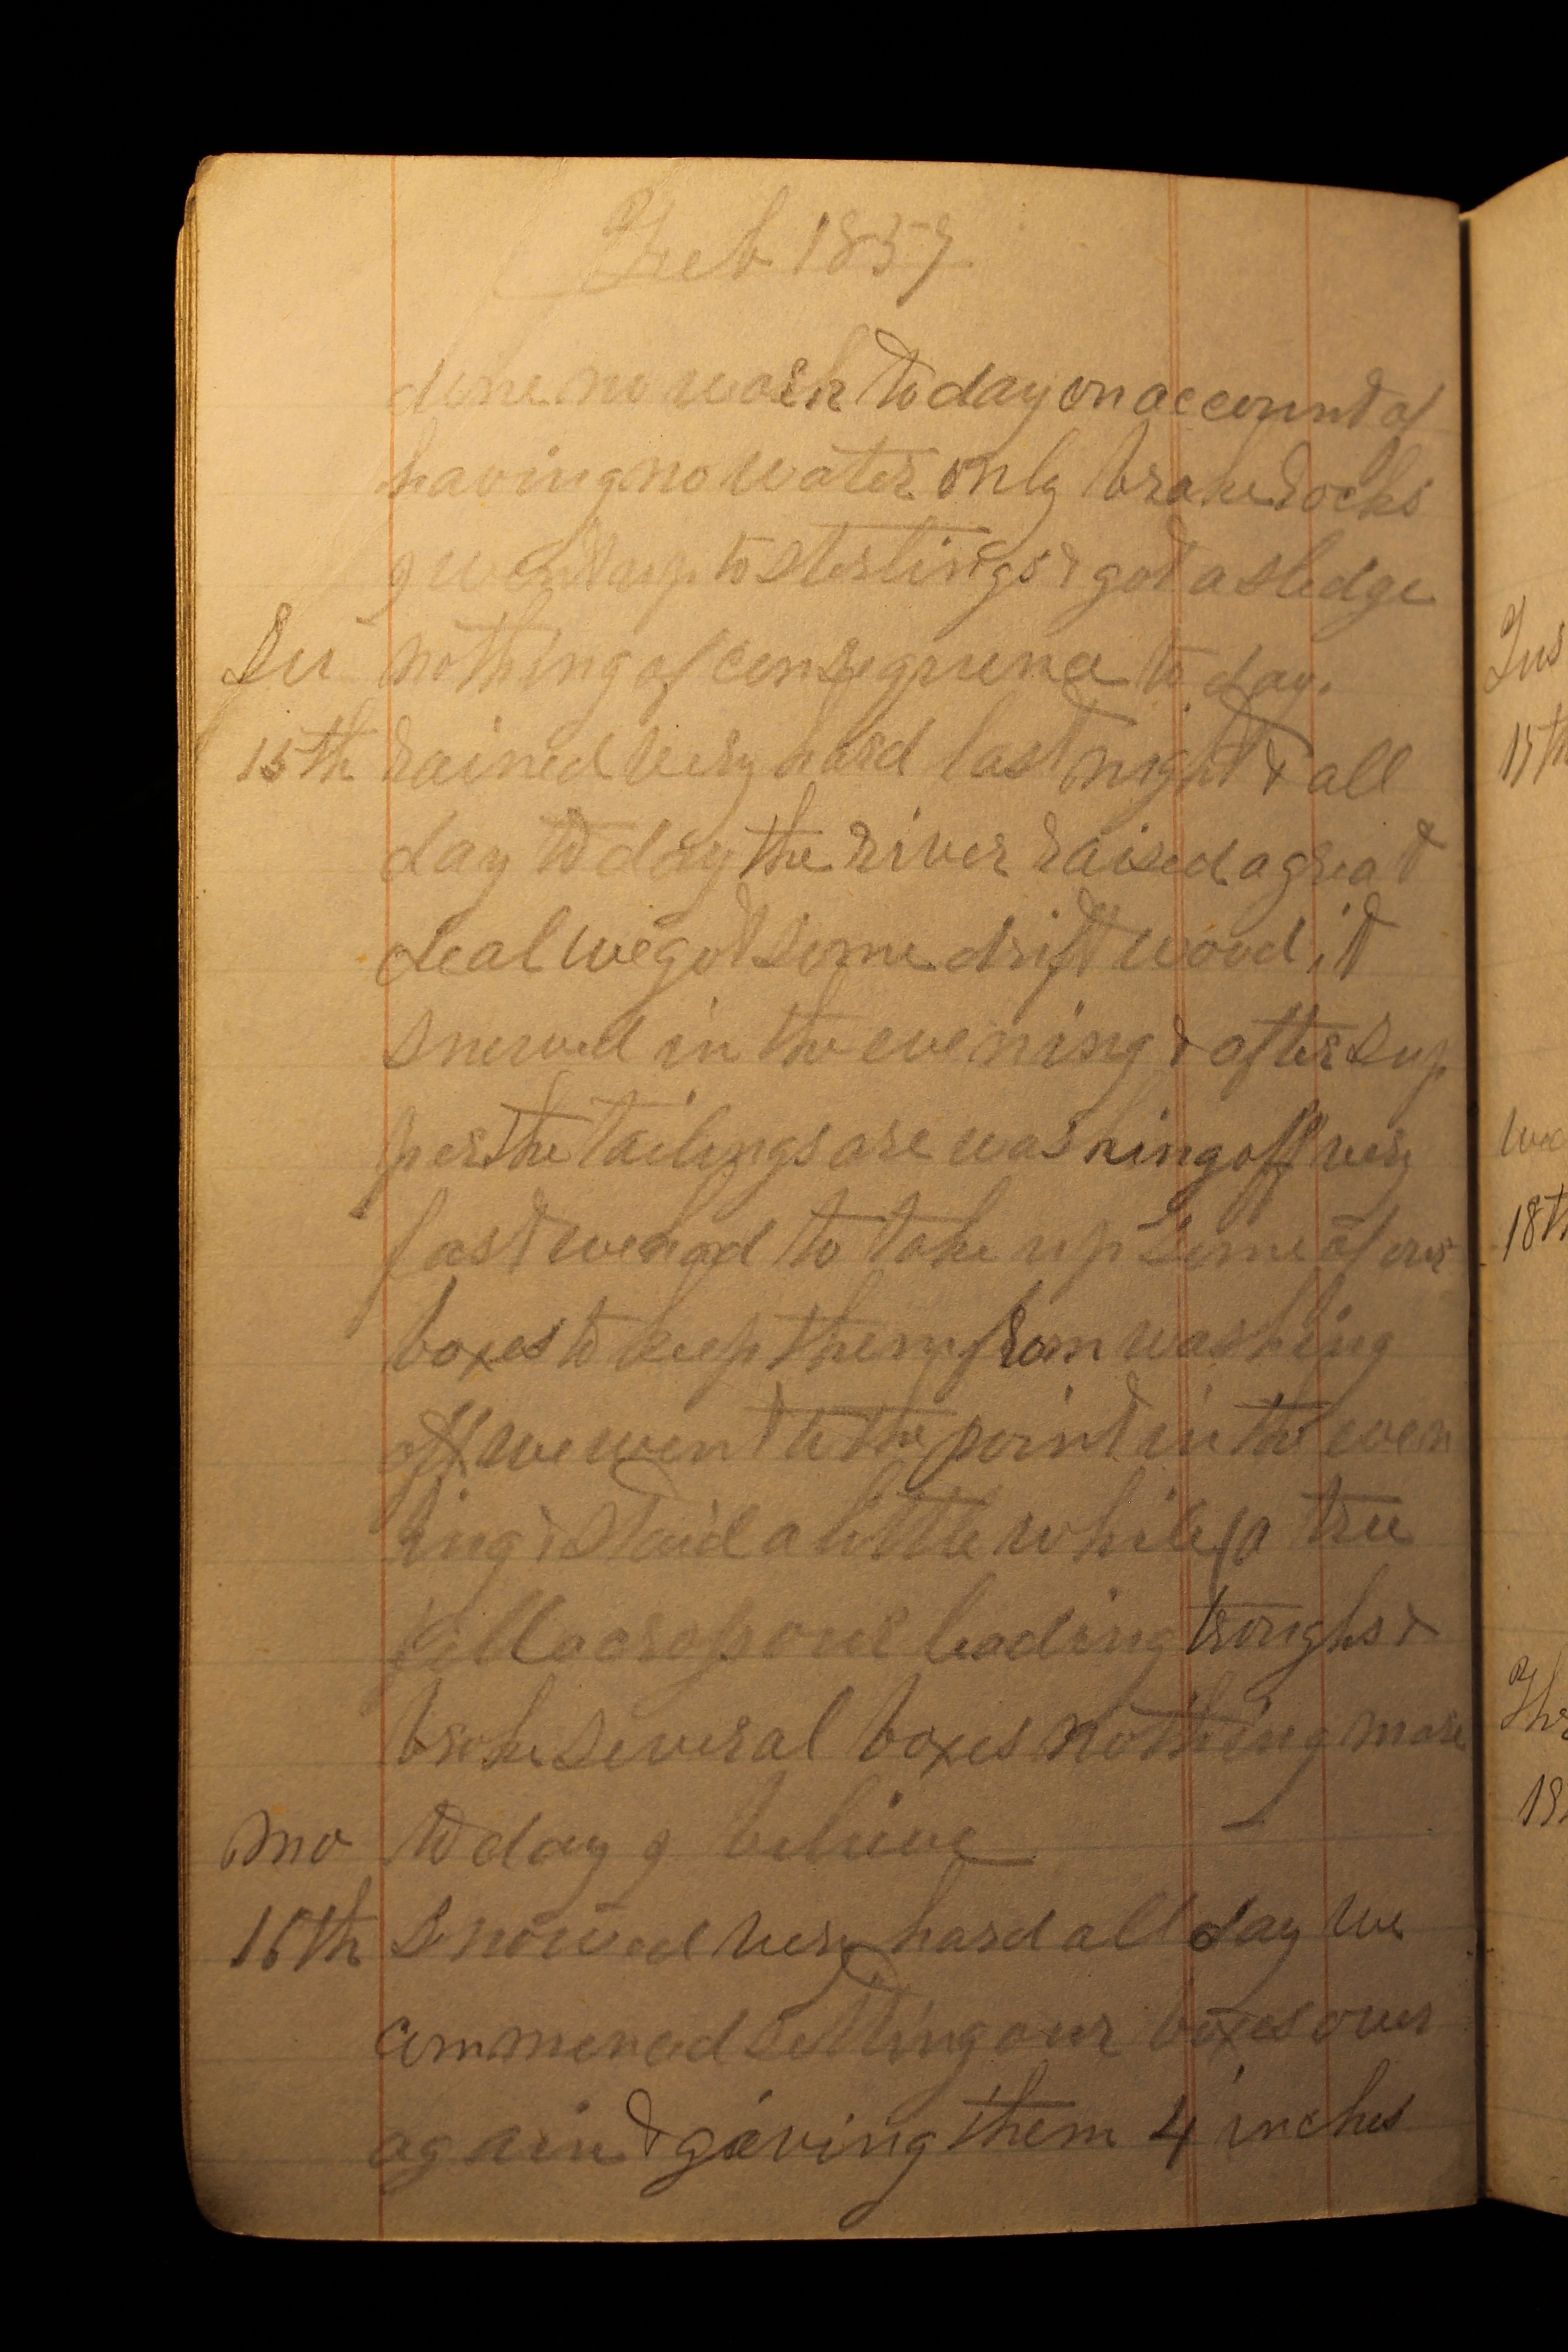 Feb 1857
done no work to day on account of
having no water only brake rocks
I went up to sterlings & got a sledge
Su nothing of consequence to day.
15th rained very hard last night & all
day to day the river raised a great
deal we got some drift wood, it
snowed in the evening & after sup
per the tailings are washing off very
fast we had to take up some of our
boxes to keep them from washing
off we went to the point in the even
ing & staid a little while a tree
fell across our leading troughs &
broke several boxes nothing more
Mo to day I believe
16th Snowed very hard all day we
commenced setting our boxes over
again & giving them 4 inches
Tus
17th
Wed
18th